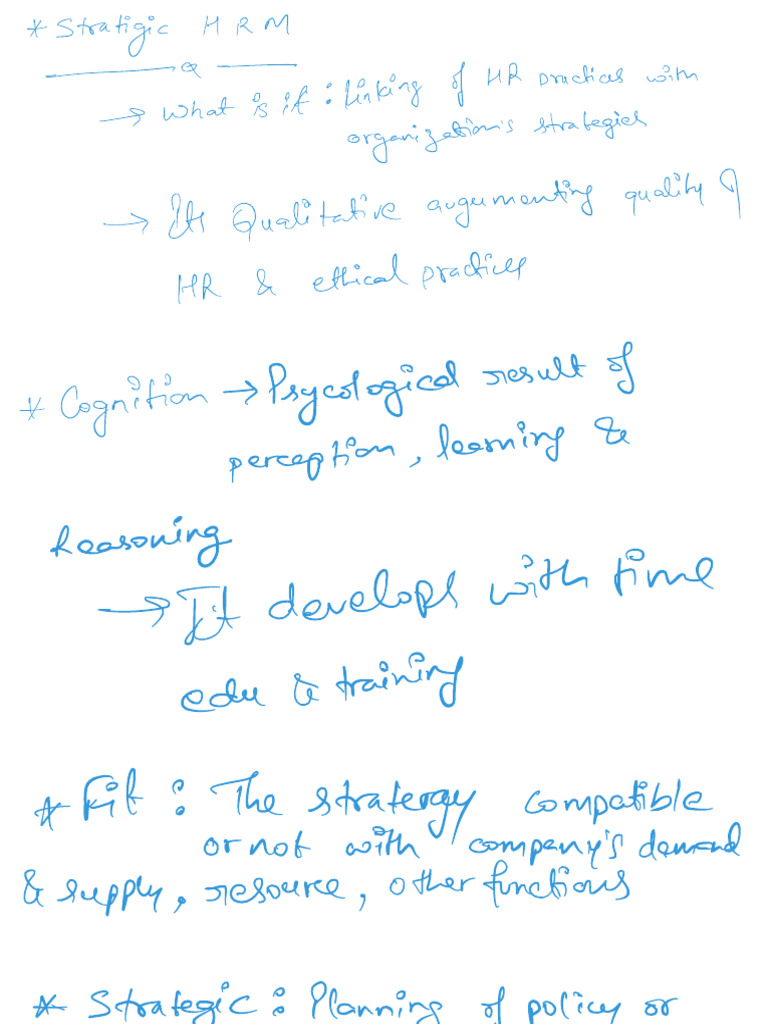 * Stratigic HRM
→ What is it : Linking of HR practices with
organization's strategies
→ Its Qualitative augumenting quality of
HR & ethical practices
* Cognition → Psycological result of
perception, learning &
Reasoning
→ It develops with time
edu & training
* Fit : The stratergy compatible
or not with company's demand
& supply, resource, other functions
* Strategic : Planning of policy or